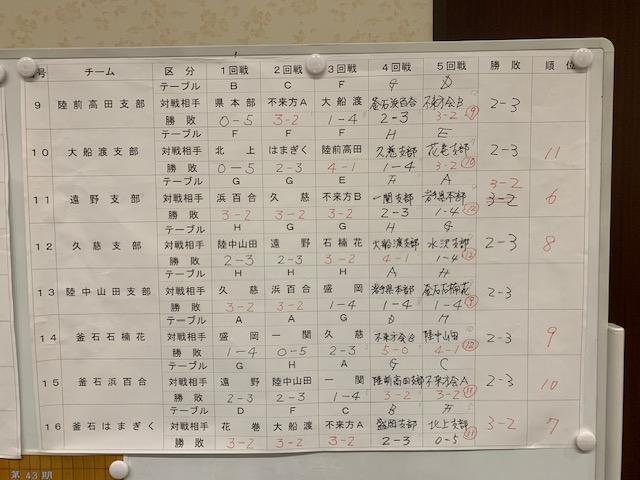 号 チーム 区分 1回戦 2回戦 3回戦 4回戦 5回戦 勝敗 順位
テーブル B C F G D
9 陸前高田支部 対戦相手 県本部 不来方A 大船渡 釜石浜百合 不来方会B 2-3
勝敗 0-5 3-2 1-4 2-3 3-2 ⑨
テーブル F F F H E
10 大船渡支部 対戦相手 北上 はまぎく 陸前高田 久慈支部 花巻支部 2-3 11
勝敗 0-5 2-3 4-1 1-4 3-2 ⑩
テーブル G G E F A 3-2
11 遠野支部 対戦相手 浜百合 久慈 不来方B 一関支部 岩手県本部 3-2 6
勝敗 3-2 3-2 3-2 2-3 1-4 ⑫
テーブル H G G H G
12 久慈支部 対戦相手 陸中山田 遠野 石楠花 大船渡支部 水沢支部 2-3 8
勝敗 2-3 2-3 3-2 4-1 1-4 ⑫
テーブル H H H A H
13 陸中山田支部 対戦相手 久慈 浜百合 盛岡 岩手県本部 釜石石楠花 2-3
勝敗 3-2 3-2 1-4 1-4 1-4 ⑨
テーブル A A G D H
14 釜石石楠花 対戦相手 盛岡 一関 久慈 不来方会B 陸中山田 2-3 9
勝敗 1-4 0-5 2-3 5-0 4-1 ⑫
テーブル G H A G C
15 釜石浜百合 対戦相手 遠野 陸中山田 一関 陸前高田支部 不来方会A 2-3 10
勝敗 2-3 2-3 1-4 3-2 3-2 ⑪
テーブル D F C B F
16 釜石はまぎく 対戦相手 花巻 大船渡 不来方A 盛岡支部 北上支部 3-2 7
勝敗 3-2 3-2 3-2 2-3 0-5 ⑪
第43期